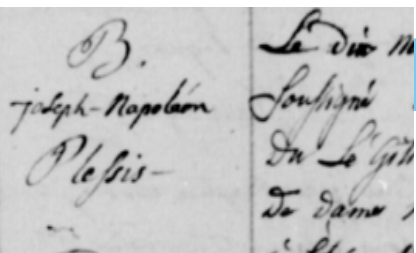 B.
joseph-Napoléon
Plessis-
Le dix
soussigné
Du Le Git
de dame